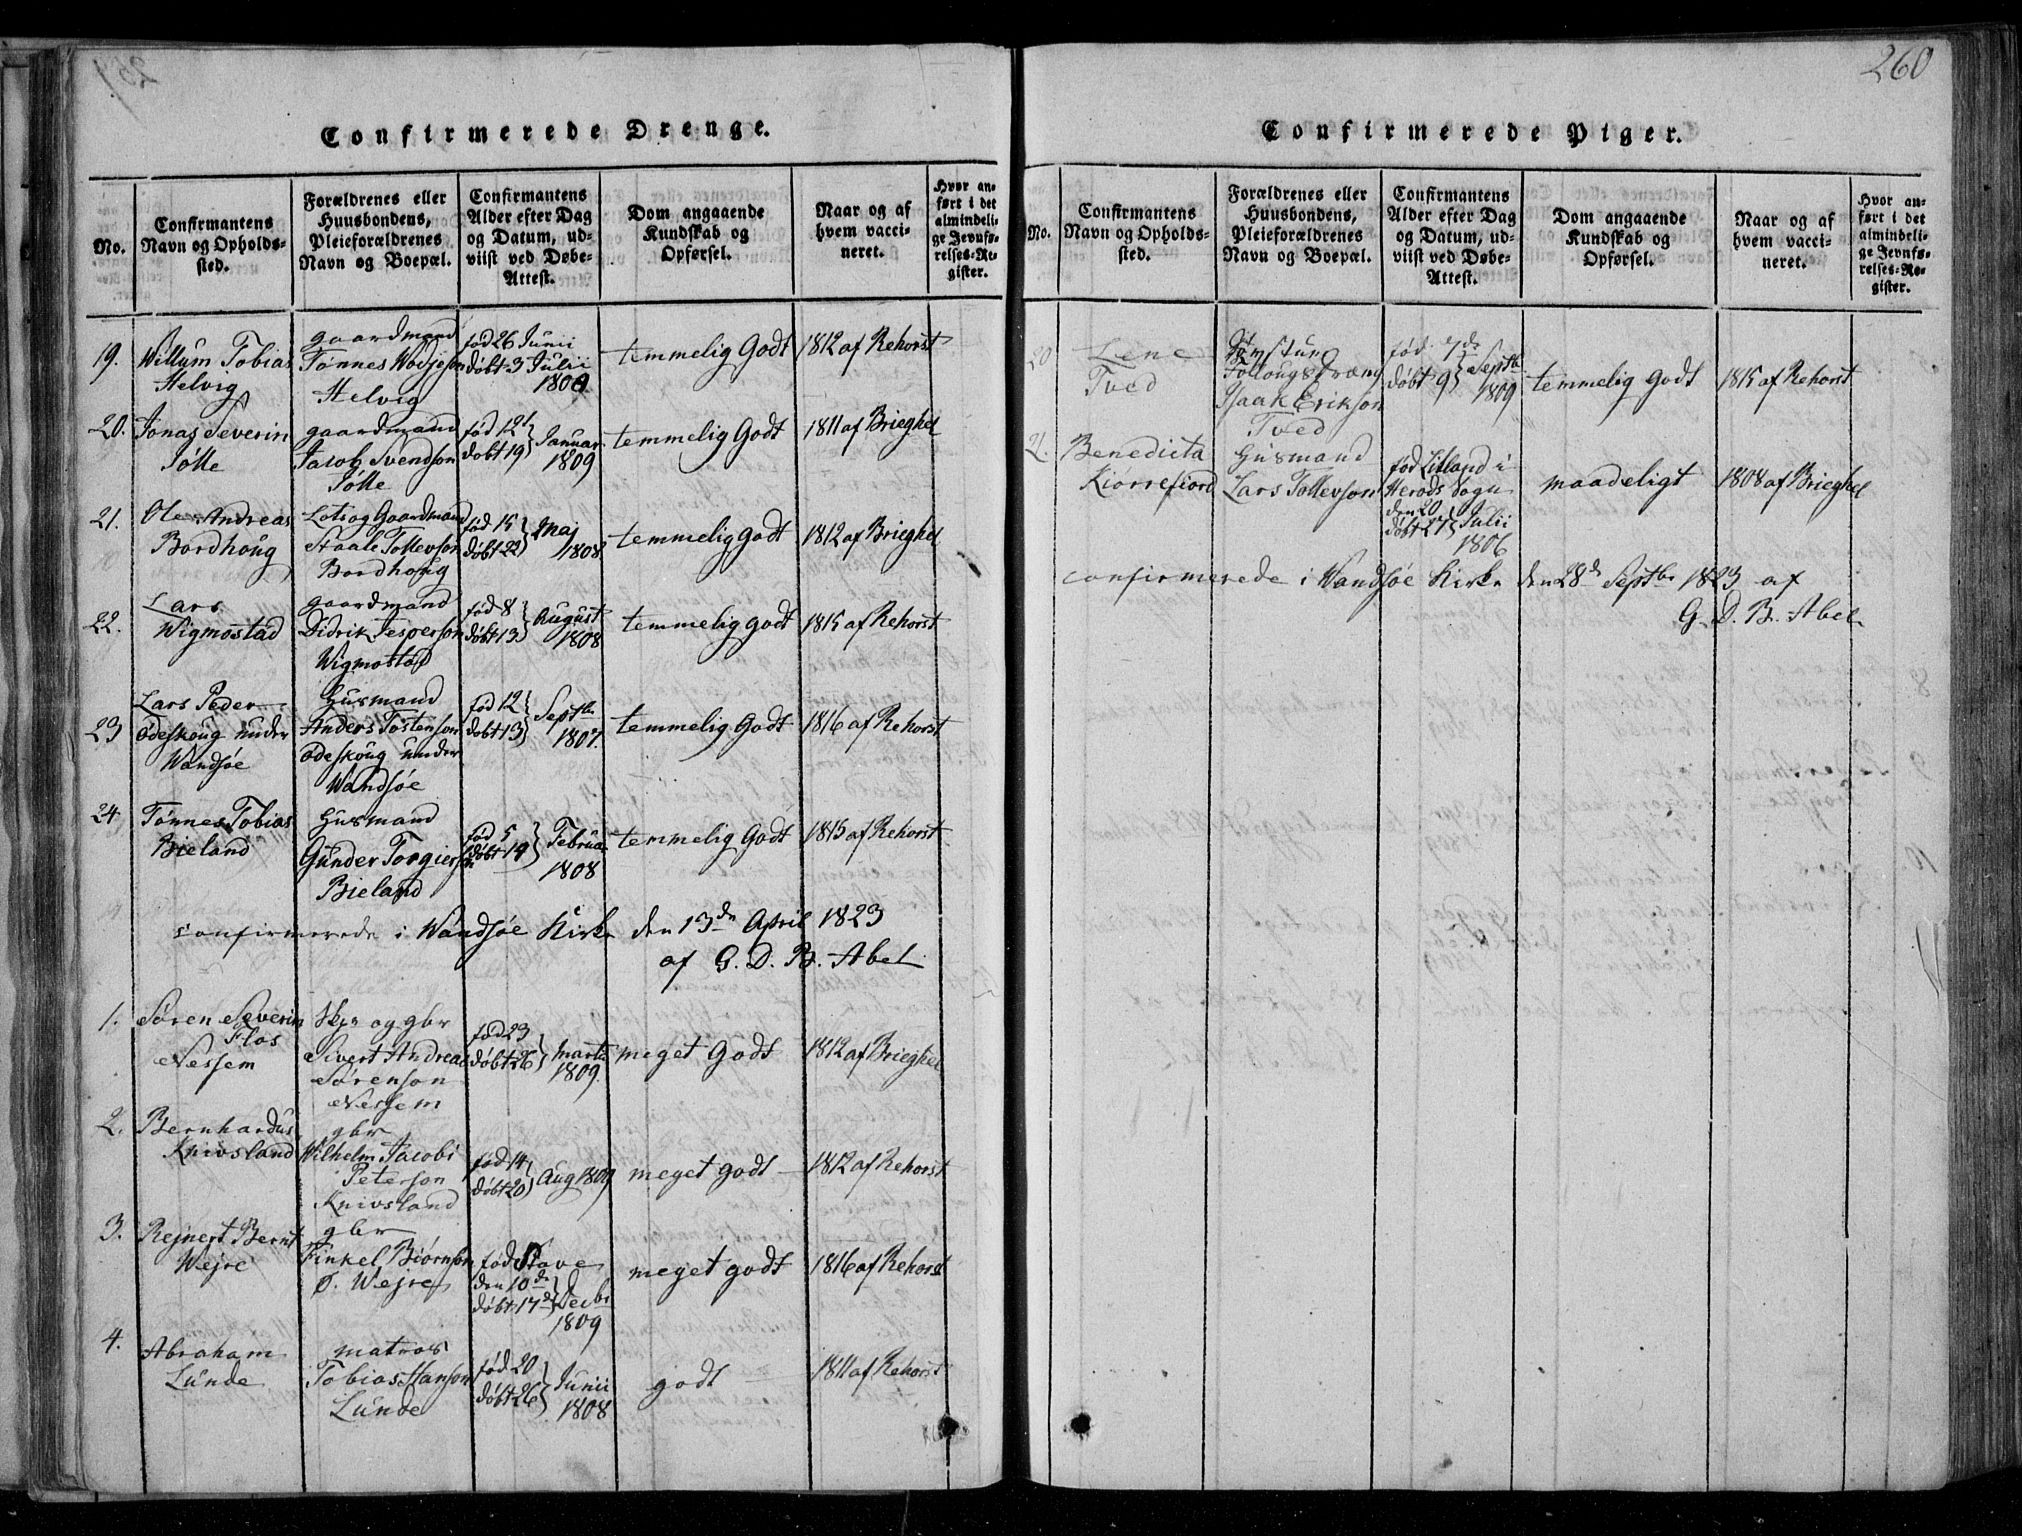 260
Confirmerede Drenge.
No.
Confirmantens Navn og Opholds-sted.
Forældrenes eller Huusbondens, Pleieforældrenes Navn og Boepæl.
Confirmantens Alder efter Dag og Datum, ud-viist ved Døbe-Attest.
Dom angaaende Kundskab og Opførsel.
Naar og af hvem vacci-neret.
Hvor an-ført i det almindeli-ge Jevnfø-relses-Re-gister.
19. Willum Tobias Helvig
gaardmand Tønnes Helvig
fød 26 Junii døbt 3 Julii 1809
temmelig Godt
1812 af Rehorst
20. Jonas Severin Jølle
gaardmand Jacob Svendson Jølle
fød 12 døbt 19 Januar 1809
temmelig Godt
1811 af Brieghel
21. Ole Andreas Bordhoug
Lots og Gaardmand Staale Tollevson Bordhoug
fød 15 døbt 22 Maj 1808
temmelig godt
1812 af Brieghel
22. Lars Wigmostad
gaardmand Didrik Jesperson Wigmostad
fød 8 døbt 13 August 1808
temmelig godt
1815 af Rehorst
23 Lars Peder Ødeskoug under Wandsøe
Husmand Anders Tostenson Ødeskoug under Wandsøe
fød 12 døbt 13 Septbr 1807.
temmelig Godt
1816 af Rehorst
24 Tønnes Tobias Bieland
Husmand Gunder Torgierson Bieland
fød 5 døbt 14 Februar 1808
temmelig Godt
1815 af Rehorst
confirmerede i Wandsøe Kirke den 13de April 1823
af G. D. B. Abel
1. Søren Severin Flos Nessem
Skpr og gbr Sivert Andreas Sørenson Nessem
fød 23 døbt 26 Marti 1809.
meget Godt
1812 af Brieghel
2. Bernhardus Knivsland
gbr Wilhelm Jacobi Peterson Knivsland
fød 14 døbt 20 Aug 1809
meget godt
1812 af Rehorst
3. Rejnert Bernt Wejre
gbr Finkel Biørnson Ø. Wejre
fød Stave den 10de døbt 17de Decbr 1809
meget godt
1816 af Rehorst
4. Abraham Lunde
matros Tobias Hanson Lunde
fød 20 døbt 26 Junii 1808
godt
1811 af Rehorst
Confirmerede Piger.
No.
Confirmantens Navn og Opholds-sted.
Forældrenes eller Huusbondens, Pleieforældrenes Navn og Boepæl.
Confirmantens Alder efter Dag og Datum, ud-viist ved Døbe-Attest.
Dom angaaende Kundskab og Opførsel.
Naar og af hvem vacci-neret.
Hvor an-ført i det almindeli-ge Jevnfø-relses-Re-gister.
20 Lene Tved
Isaak Erikson Tved
fød 7de døbt 9 Septbr 1809
temmelig godt
1815 af Rehorst
21. Benedicta Kiørrefiord
Husmand Lars Tollevson
fød Litland i Herods Sogn den 20 døbt 27 Julii 1806
maadeligt
1808 af Brieghel
confirmerede i Wandsøe Kirke den 28de Septbr 1823 af
G. D. B. Abel